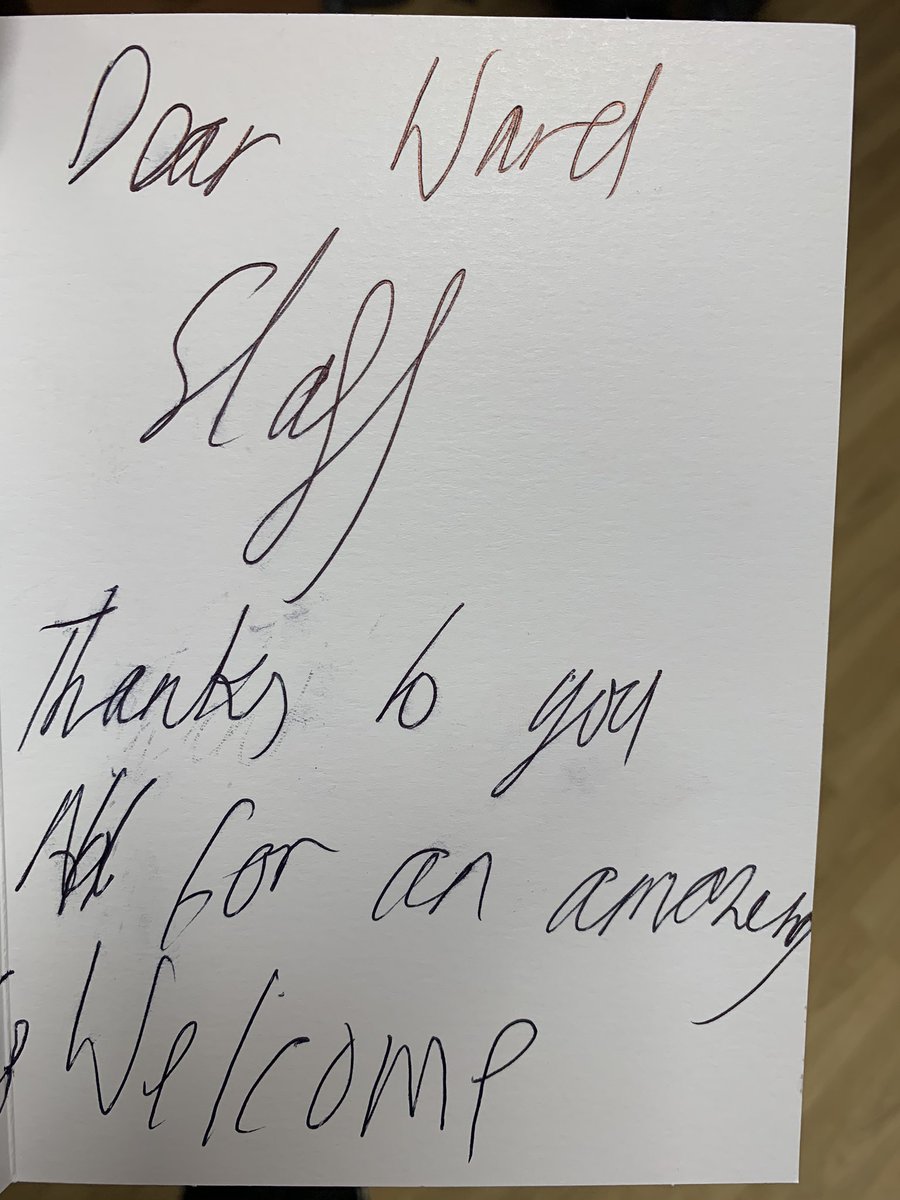 Dear Ward
Staff
Thanks to you
All for an amazing
Welcome